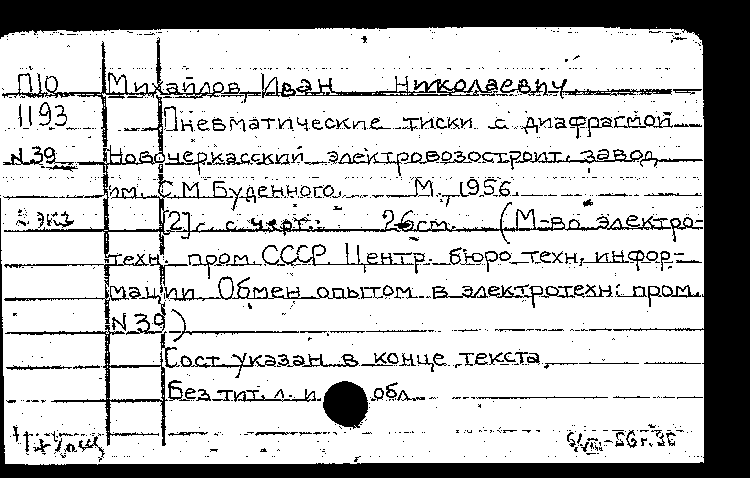 П10 Михайлов, Иван Николаевич.
1193 Пневматические тиски с диафрагмой
N 39 Новочеркасский электровозостроит. завод
им. С.М. Буденного. М., 1956.
2 экз [2] с. с черт.; 26 см. (М-во электро-
техн. пром. СССР. Центр. бюро техн. инфор-
мации. Обмен опытом в электротехн. пром.
N 39)
Сост. указан в конце текста.
Без тит. л. и обл.